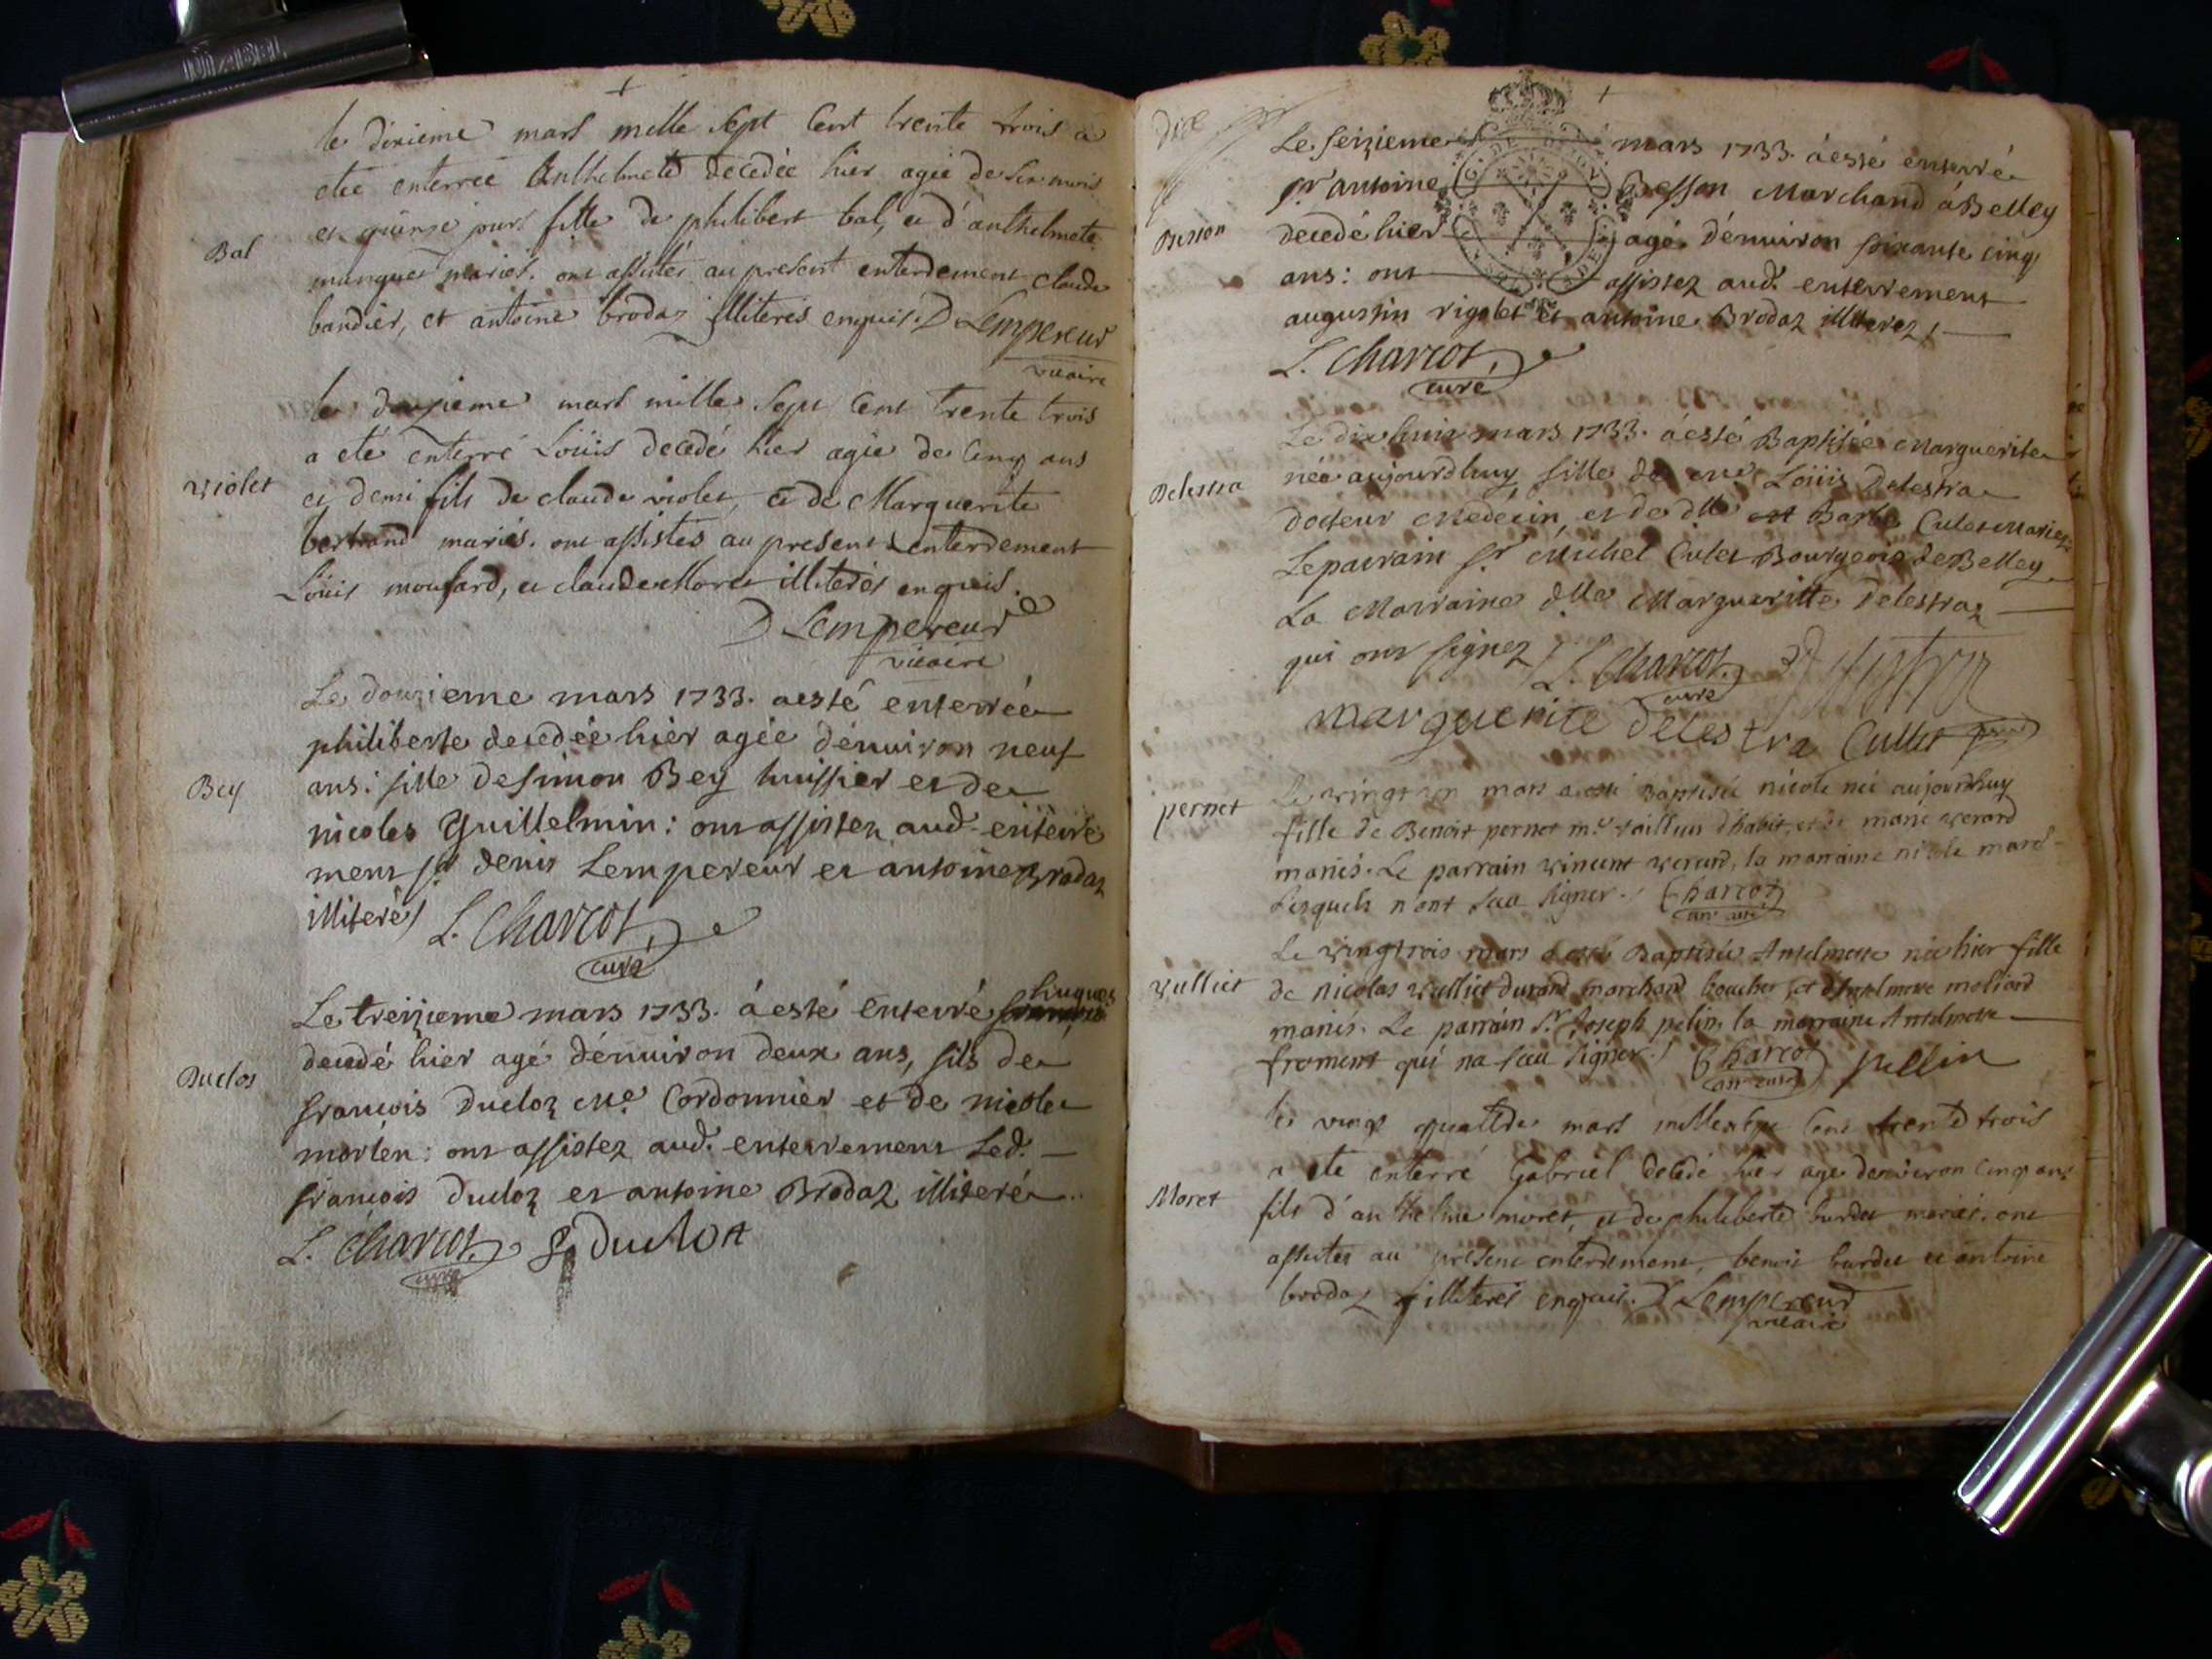 le dixieme mars mille sept cent trente trois a
eté enterreé Anthelmete decedeé hier agée de six mois
et quinze jours fille de philibert bal, et d'anthelmete
mariés. ont assistés au present enterdement claude
Bal
bandier, et antoine brodaz illiterés enquis. D Lempereur
vicaire
le douzieme mars mille sept cent trente trois
a eté enterré Loüis decedé hier agée de cinq ans
violet
et demi fils de claude violet, et de Marguerite
bertrand mariés. ont assistés au present enterdement
Loüis moufard, et claude Moret illiterés enquis.
D Lempereur
vicaire
Le douzieme mars 1733. aesté enterrée
philiberte decedée hier agée dénuiron neuf
Bey
ans: fille de simon Bey huissier et de
nicoles Guillelmin: ont assistez aud. enterre
ment sr denis Lempereur et antoine Brodaz
illiteré/ L. Charcot,
curé
Le treizieme mars 1733. áesté enterré hugues
decedé hier agé dénuiron deux ans, fils de
Duclos
francois Ducloz Me Cordonnier et de nicole
morten: ont assistez aud. enterrement led.
francois Ducloz et antoine Brodaz illiteré
L. Charcot, f Duclot
curé
Le seizieme mars 1733. áesté enterré
sr antoine Besson Marchand á Belley
Besson
decedé hier agé dénuiron soixante cinq
ans: ont assistez aud. enterrement
augustin rigolet et antoine Brodaz illiterez /
L. Charcot,
curé
Le dix huit mars 1733. áesté Baptisée Marguerite
Delestra
née aujourdhuy fille de me Loüis Delestra
docteur Medecin, et de dlle Barbe Culet Mariez
Le parrain sr Michel Culet Bourgeois de Belley
La Marraine dlle Marguerite Delestraz
qui ont signez / L. Charcot,
curé
marguerite delestra Cullet
pernet
Le vingt un mars a esté Baptisée nicole née aujourdhuy
fille de Benoit pernet me taillieur d'habit, et de marie verard
mariés. Le parrain vincent verard, la marraine nicole mard
Lesquels n'ont scu signer. / Charcot
anc curé
Le vingtrois mars a esté Baptisée Antelmette née hier fille
vulliet
de nicolas vulliet durand marchand boucher, et d'Antelmette moliard
mariés. Le parrain Sr. Joseph pelin, la marraine Antelmette
froment qui na scu signer. / Charcot pellin
anc curé
le vingt quattre mars mille sept cent trente trois
a eté enterré Gabriel decedé hier age denviron cinq ans
Moret
fils d'anthelme moret, et de philiberte burdet mariés. ont
assistés au present enterdement, benoit burdet et antoine
brodaz illiterés enquis. D Lempereur
vicaire